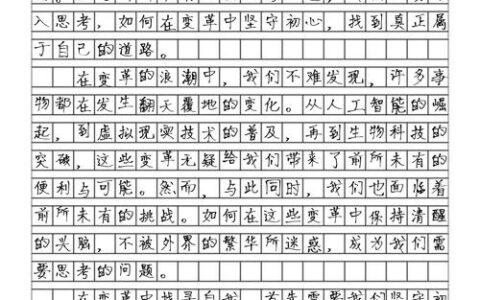 入思考，如何在变革中坚守初心，找到真正属
于自己的道路。
在变革的浪潮中，我们不难发现，许多事
物都在发生翻天覆地的变化。从人工智能的崛
起，到虚拟现实技术的普及，再到生物科技的
突破，这些变革无疑给我们带来了前所未有的
便利与可能。然而，与此同时，我们也面临着
前所未有的挑战。如何在这些变革中保持清醒
的头脑，不被外界的繁华所迷惑，成为我们需
要思考的问题。
在变革中找寻自我，首先需要我们坚守初